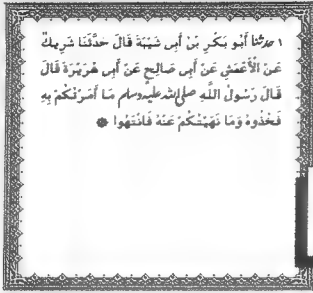 ١ حدثنا أَبُو بَكْرِ بْنُ أَبِى شَيْبَةَ قَالَ حَدَّثَنَا شَرِيكٌ
عَنِ الْأَعْمَشِ عَنْ أَبِى صَالِحٍ عَنْ أَبِى هُرَيْرَةَ قَالَ
قَالَ رَسُولُ اللَّهِ صلى الله عليه وسلم مَا أَمَرْتُكُمْ بِهِ
فَخُذُوهُ وَمَا نَهَيْتُكُمْ عَنْهُ فَانْتَهُوا